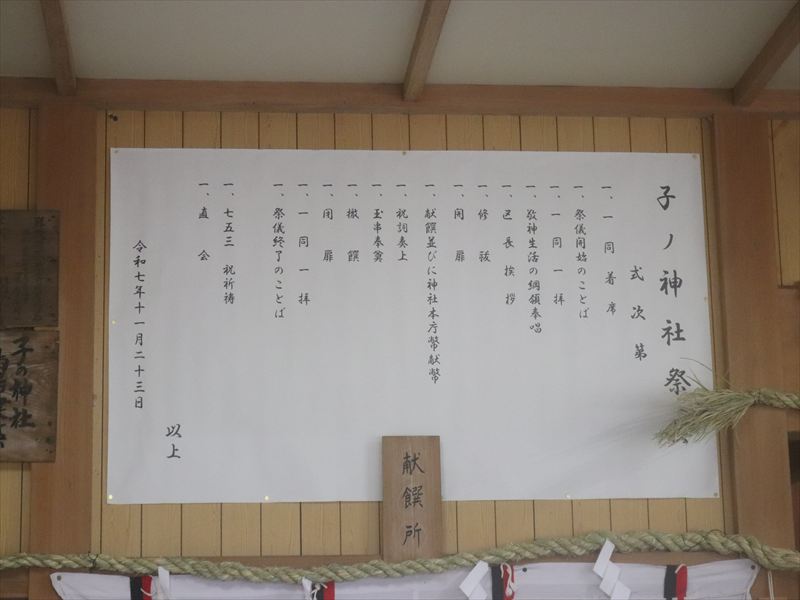 子ノ神社祭
式次第
一、一同着席
一、祭儀開始のことば
一、一同一拝
一、敬神生活の綱領奉唱
一、区長挨拶
一、修祓
一、開扉
一、献饌並びに神社本庁幣献幣
一、祝詞奏上
一、玉串奉奠
一、撤饌
一、閉扉
一、一同一拝
一、祭儀終了のことば
一、七五三 祝祈祷
一、直会
以上
令和七年十一月二十三日
献饌所
子の神社